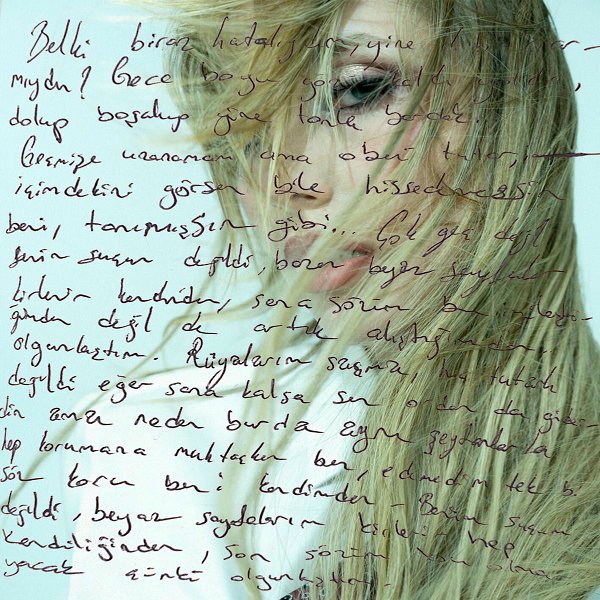 Belki biraz hatalıydım, yine
mıydın? Gece boyu
dolup boşalıp yine
Geçmişe uzanamam ama o beni tutar,
içimdekini görsen bile hissedemezsin
beni, tanımışsın gibi... Çok geç değil
senin suçun değildi, bazen beyaz sayfalar
kirlenir kendinden, sana sözüm
değil de artık alıştığımdan,
olgunlaştım. Rüyalarım suçsuz, hiç tutarlı
değildi eğer sana kalsa sen ordan da
ama neden burda aynı şeytanlarla
hep korumana muhtaçken ben, edemedim tek
söz koru beni kendimden - Benim suçum
değildi, beyaz sayfaların kirlenir hep
kendiliğinden, son sözüm
çünkü olgunlaştım.